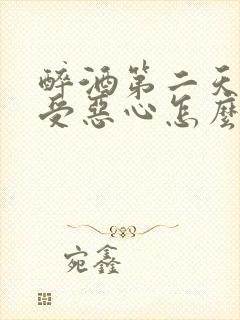 醉酒第二天
受惡心怎麼
宛鑫